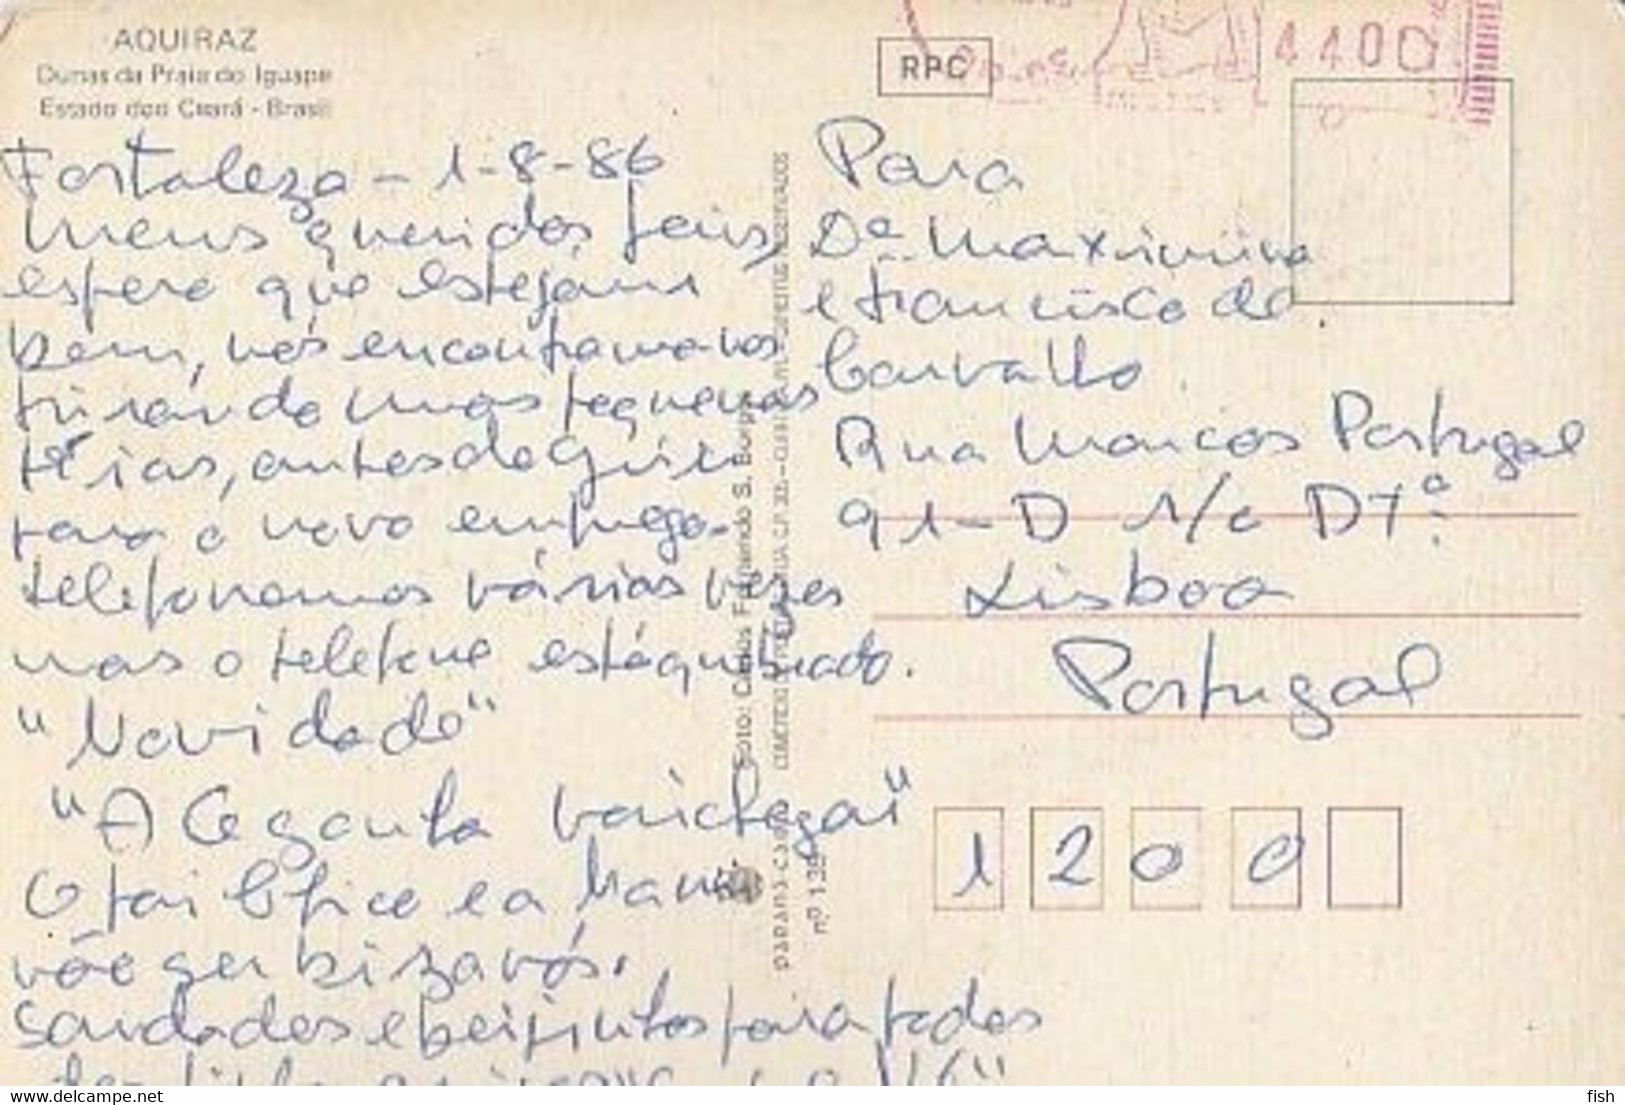 AQUIRAZ
Dunas da Praia do Iguape
Estado doo Ceará - Brasil
RPC
4400
Fortaleza - 1-8-86
Meus queridos pais,
espero que estejam
bem, nós encontramo-nos
tirando umas pequenas
férias, antes de
para o novo emprego.
telefonamos várias vezes
mas o telefone está
"Novidade"
"A Cegonha vai chegar"
O pai e a
vão ser bizavós.
Saudades e beijinhos para todos
Foto: Carlos Fernando S. Borges
nº 135
Para
Dª Maximina
e Francisco de
Carvalho
Rua Marcos Portugal
91-D r/c Dtº
Lisboa
Portugal
1 2 0 0
delcampe.net
fish